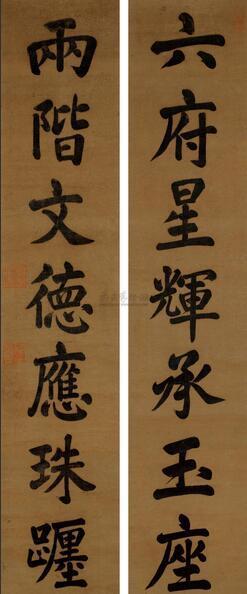 六府星輝承玉座
兩階文德應珠躔